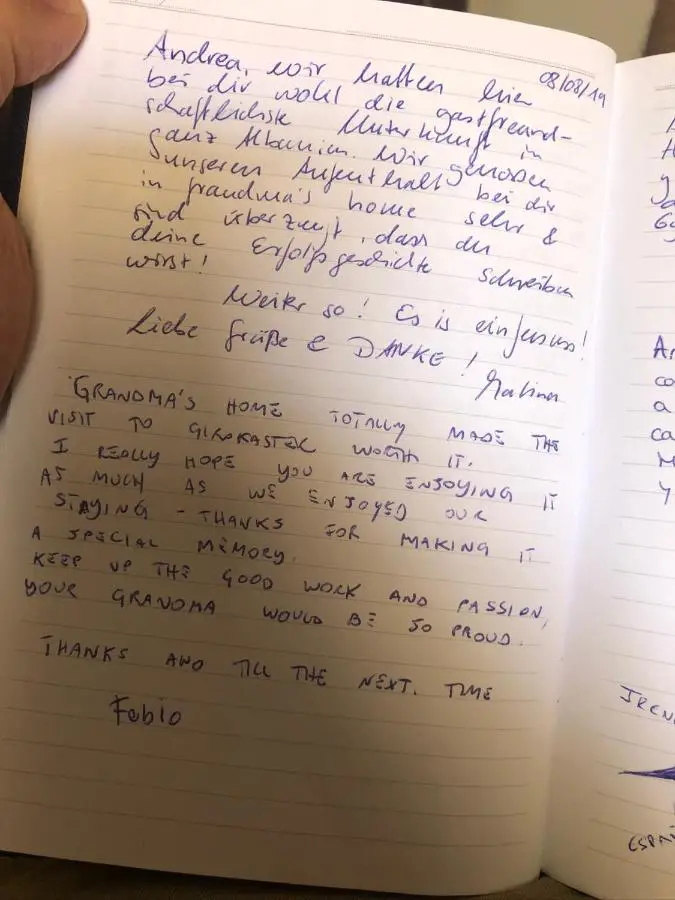 08/08/19
Andrea, wir hatten hier
bei dir wohl die gastfreund-
schaftlichste Unterkunft in
ganz Albanien. Wir genossen
unseren Aufenthalt bei dir
in grandma's home sehr &
sind überzeugt, dass du
deine Erfolgsgeschichte schreiben
wirst!
Weiter so! Es is einfach
Liebe Grüße & DANKE!
GRANDMA'S HOME TOTALLY MADE THE
VISIT TO GIROKASTER WORTH IT.
I REALLY HOPE YOU ARE ENJOYING IT
AS MUCH AS WE ENJOYED OUR
STAYING - THANKS FOR MAKING IT
A SPECIAL MEMORY.
KEEP UP THE GOOD WORK AND PASSION,
YOUR GRANDMA WOULD BE SO PROUD.
THANKS AND TILL THE NEXT. TIME
Fabio